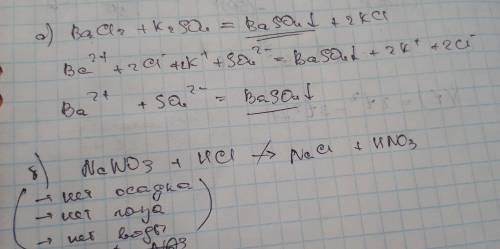 а) BaCl₂ + K₂SO₄ = BaSO₄↓ + 2KCl
Ba²⁺ + 2Cl⁻ + 2K⁺ + SO₄²⁻ = BaSO₄↓ + 2K⁺ + 2Cl⁻
Ba²⁺ + SO₄²⁻ = BaSO₄↓
б) NaNO₃ + HCl ↛ NaCl + HNO₃
→ нет осадка
→ нет газа
→ нет воды